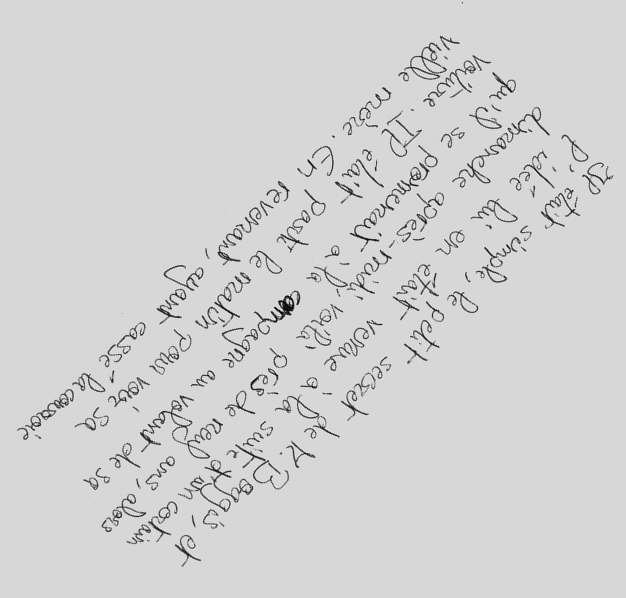 Il était simple, le petit secret de M. Boggis, et
l'idée lui en était venue à la suite d'un certain
dimanche après-midi voilà près de neuf ans, alors
qu'il se promenait à la campagne au volant de sa
voiture. Il était parti le matin pour voir sa
vielle mère. En revenant, ayant cassé la courroie